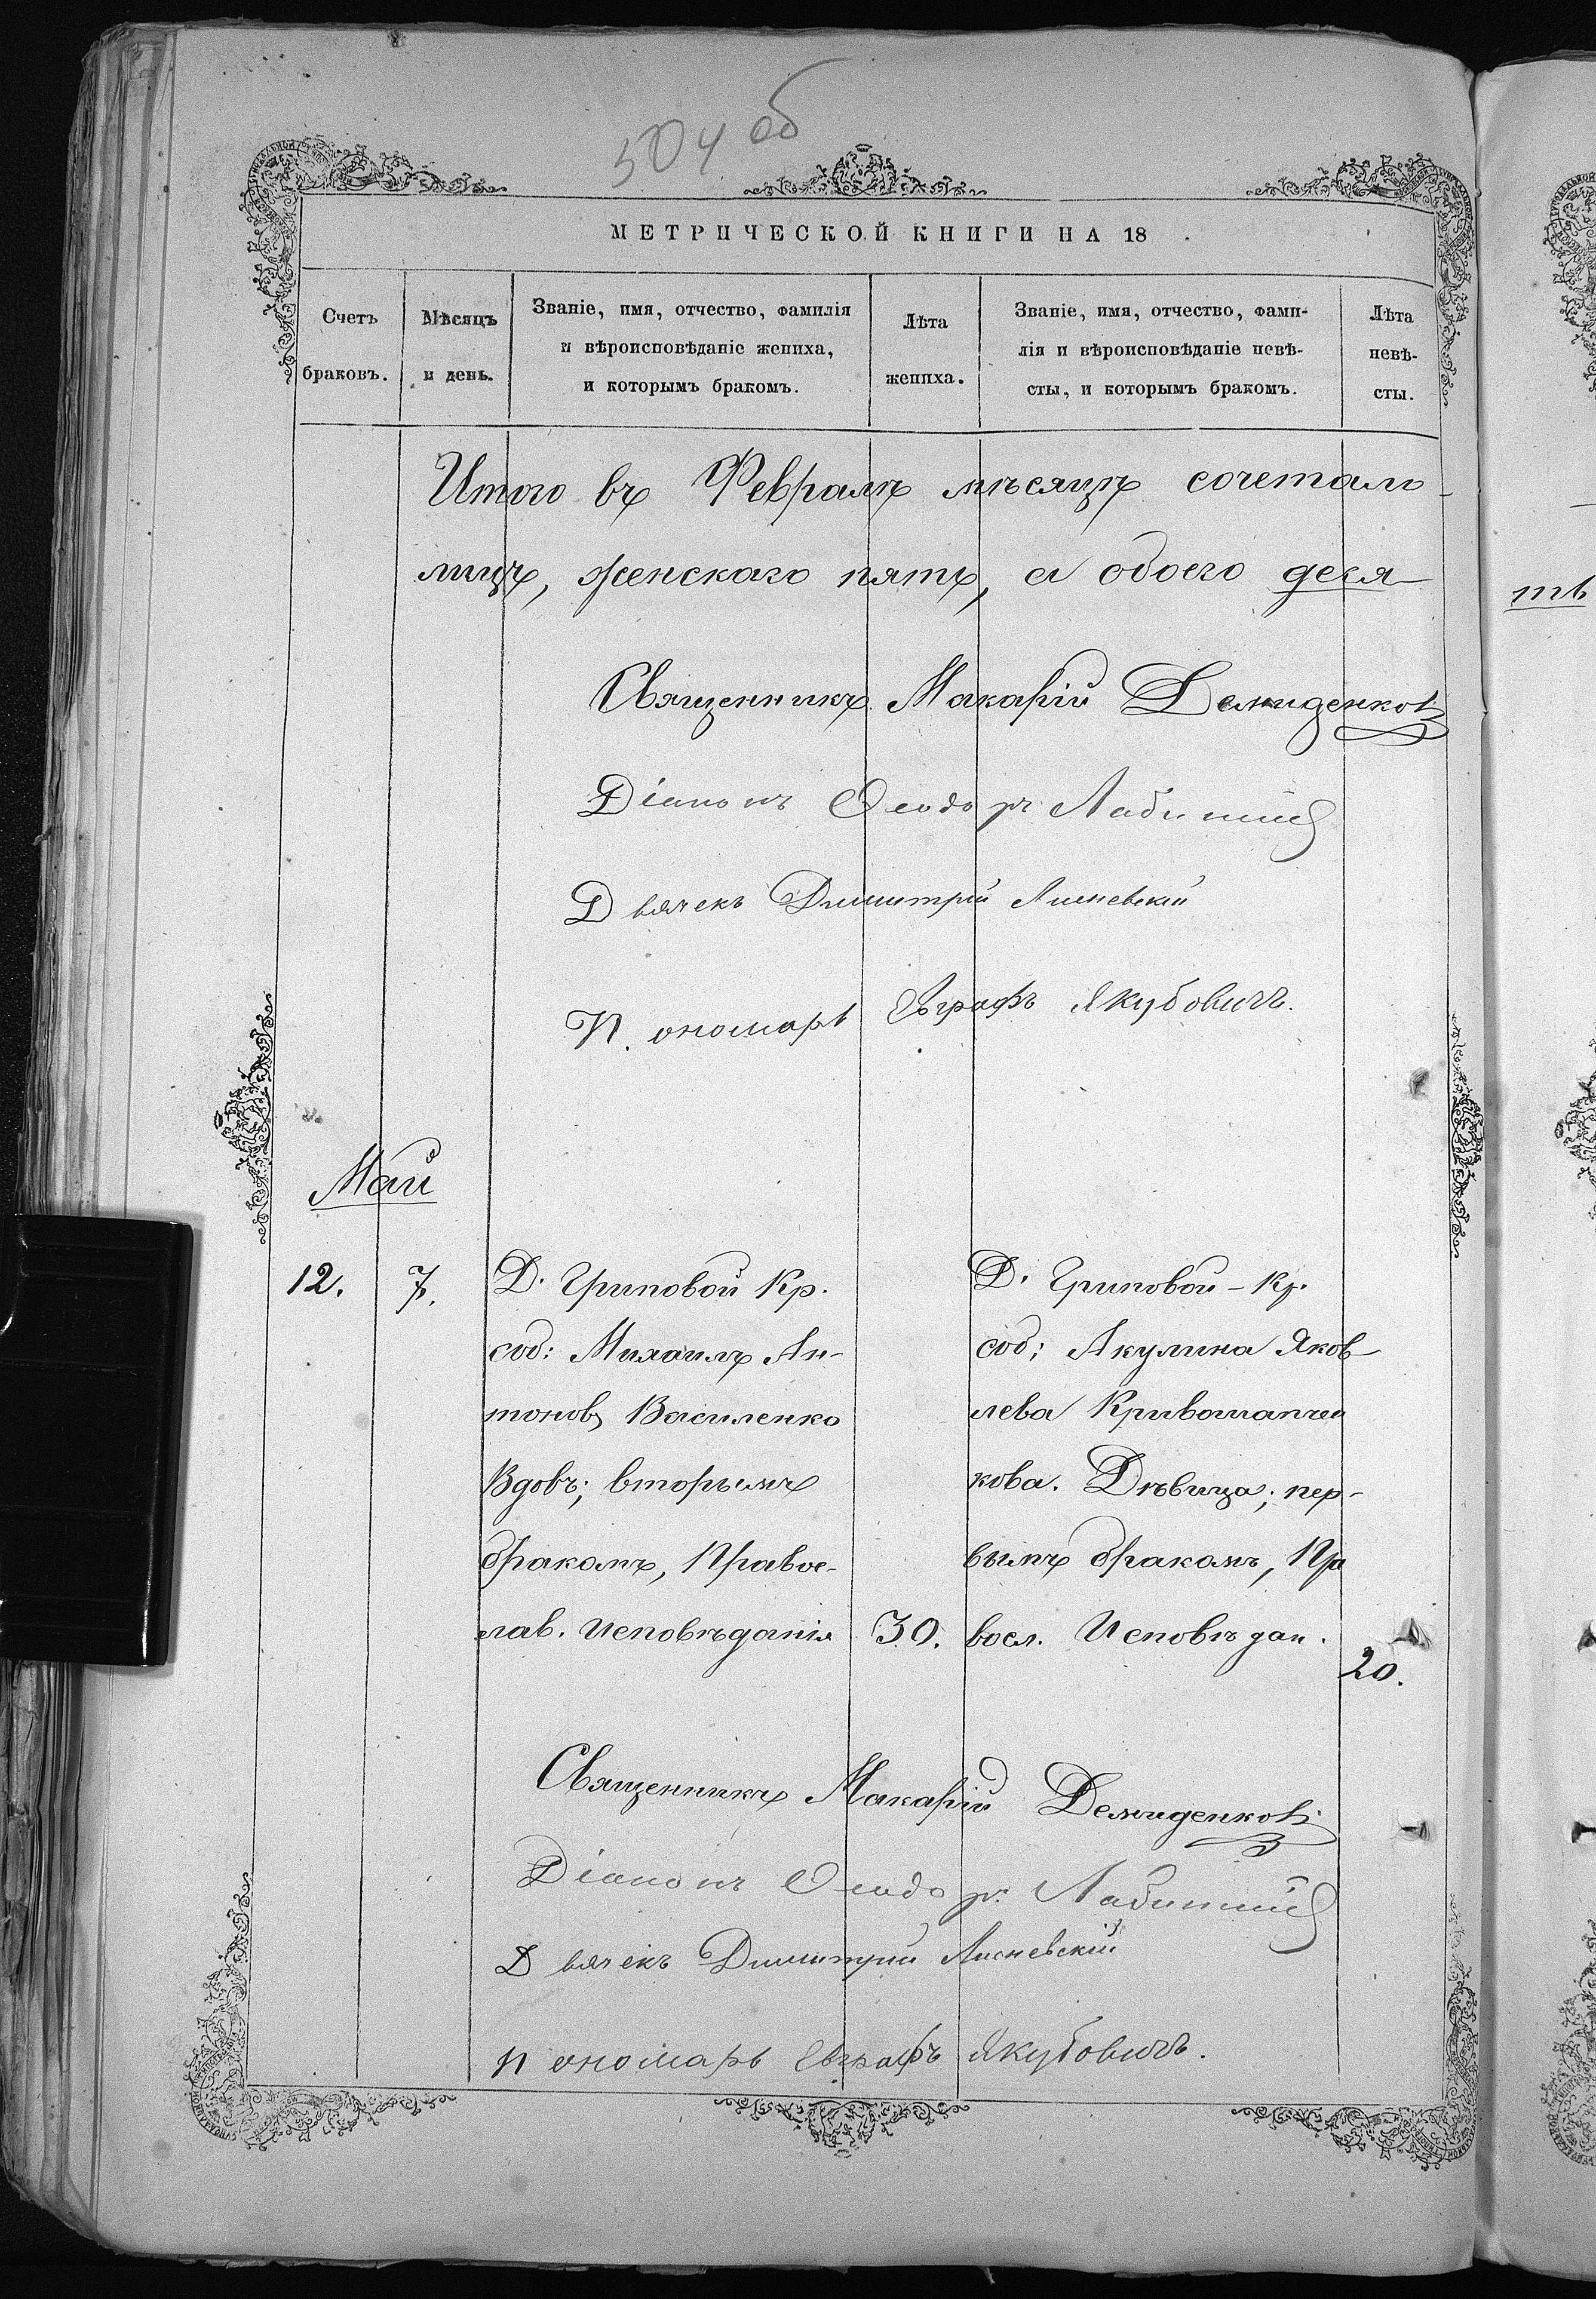 504 об
МЕТРИЧЕСКОЙ КНИГИ НА 18 .
Счетъ браковъ.
Мѣсяцъ и день.
Званіе, имя, отчество, фамилія
и вѣроисповѣданіе жениха,
и которымъ бракомъ.
Лѣта жениха.
Званіе, имя, отчество, фами-
лія и вѣроисповѣданіе невѣ-
сты, и которымъ бракомъ.
Лѣта невѣ-
сты.
Итого въ Февралѣ мѣсяцѣ сочетало
лицъ, женскаго пять, а обоего деся
ть
Священникъ Макарій Демиденковъ
Діаконъ Ѳеодоръ
Дьячекъ Димитрій Лисневскій
Пономарь Евграфъ Якубовичъ.
Май
12. 7.
Д. Гриповой Кр.
соб: Михаилъ Ан-
тоновъ Василенко
Вдовъ; вторымъ
бракомъ, Правос-
лав. исповѣданія
30.
Д. Гриповой - Кр.
соб; Акулина Яков
лева
кова. Дѣвица; пер-
вымъ бракомъ, Пра
восл. Исповѣдан.
20.
Священникъ Макарій Демиденковъ
Діаконъ Ѳеодоръ
Дьячекъ Димитрій Лисневскій
Пономарь Евграфъ Якубовичъ.